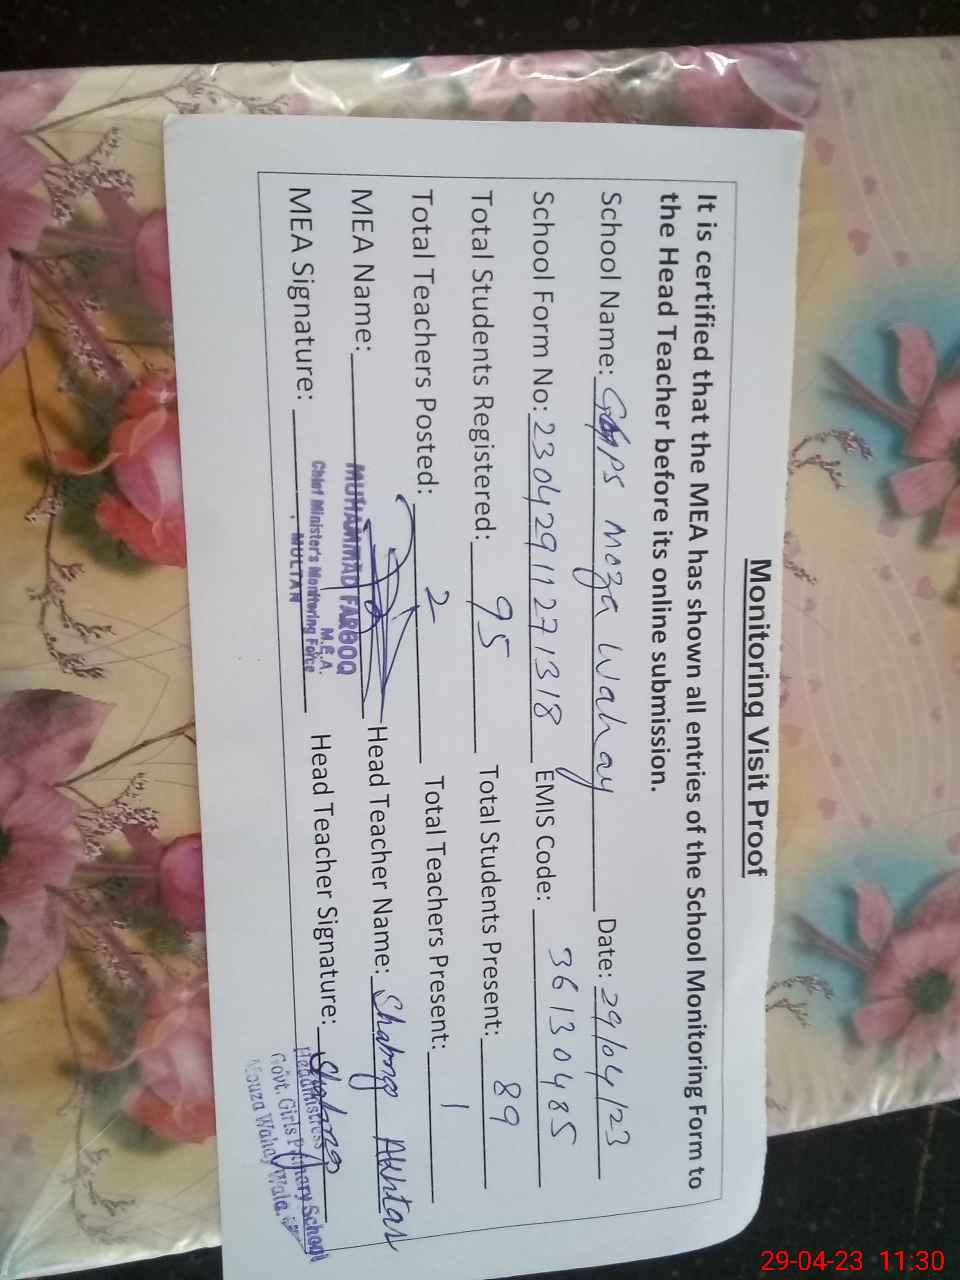 Monitoring Visit Proof
It is certified that the MEA has shown all entries of the School Monitoring Form to
the Head Teacher before its online submission.
School Name: GGPS Moza Wahay Date: 29/04/23
School Form No: 23042911271318 EMIS Code: 36130485
Total Students Registered: 95 Total Students Present: 89
Total Teachers Posted: 2 Total Teachers Present: 1
MEA Name: MUHAMMAD FAROOQ Head Teacher Name: Akhtar
M.E.A.
Chief Minister's Monitoring Force
MULTAN
MEA Signature: Head Teacher Signature:
Headmistress
Govt. Girls Primary School
Mouza Wahay Wala
29-04-23 11:30